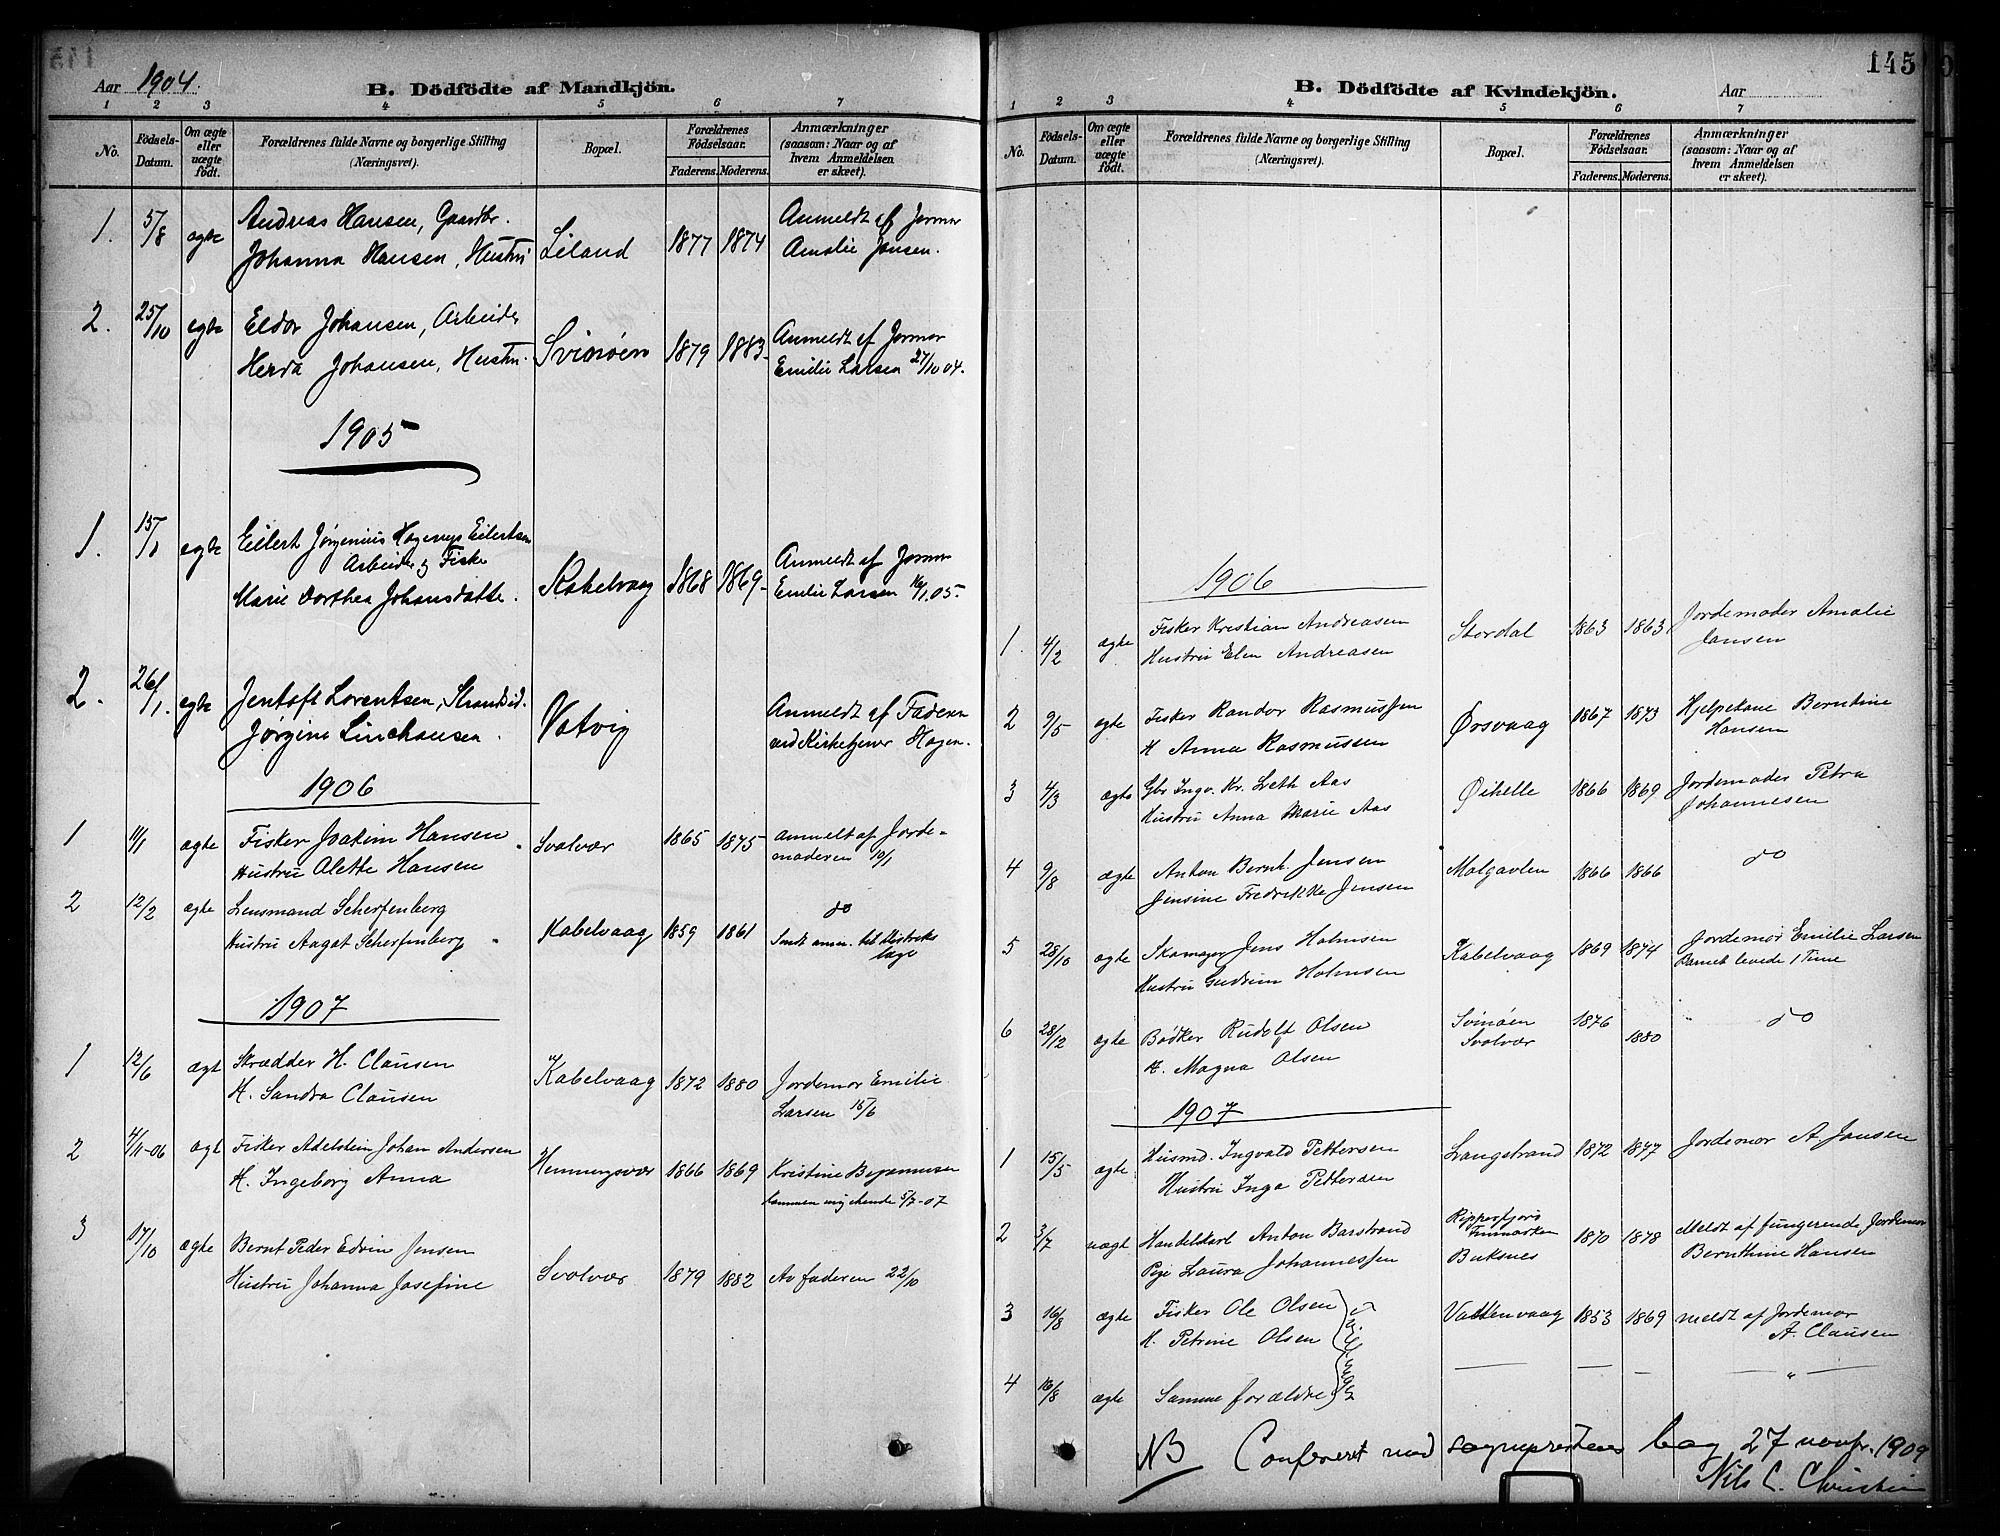 Aar 1904.
B. Dödfödte af Mandkjön.
1 2 3 4 5 6 7
No.
Födsels-Datum.
Om ægte eller uægte födt.
Forældrenes fulde Navne og borgerlige Stilling (Næringsvei).
Bopæl.
Forældrenes Födselsaar.
Faderens. Moderens.
Anmærkninger (saasom: Naar og af hvem Anmeldelsen er skeet).
1. 5/8 ægte Andreas Hansen, Gaardbr. Liland 1877 1874 Anmeldt af Jormor
Johanna Hansen, Hustru Amalie Jansen.
2. 25/10 egte Eldor Johansen, Arbeider Svinøen 1879 1883- Anmeldt af Jormor
Herda Johansen, Hustru. Emilie Larsen 27/10 04.
1905
1. 15/1 egte Eilert Jørgenius Eilertsen
Arbeider og Fisker Kabelvaag 1868 1869- Anmeldt af Jormor
Marie Dorthea Johansdatter. Emilie Larsen 16/1.05.
2. 26/1. egte Jentoft Lorentsen, Strandsid. Vatvig Anmeldt af Faderen
Jørgine Linchausen. ved Kirketjener Hagen.
1906
1 11/1 ægte Fisker Joakim Hansen Svolvær 1865 1875 anmelt af Jorde-
Hustru Alette Hansen moderen 10/1
2 12/2 ægte Lensmand Scherfenberg Kabelvaag 1859 1861 do
Hustru Aagot Scherfenberg Sendt anm. til Distrikts
læge
1907
1 12/6 ægt Skrædder H. Clausen Kabelvaag 1872 1880 Jordemor Emilie
H. Sandra Clausen Larsen 15/6
2 4/11-06 ægt Fisker Adelstein Johan Andersen Henningsvær 1866 1869 Kristine
H. Ingeborg Anna 5/7-07
3 17/10 ægte Bernt Peder Edvin Jensen Svolvær 1879 1882 Av faderen 22/10
Hustru Johanna Josefine
145
B. Dödfödte af Kvindekjön.
Aar
1 2 3 4 5 6 7
No.
Födsels-Datum.
Om ægte eller uægte födt.
Forældrenes fulde Navne og borgerlige Stilling (Næringsvei).
Bopæl.
Forældrenes Födselsaar.
Faderens. Moderens.
Anmærkninger (saasom: Naar og af hvem Anmeldelsen er skeet).
1906
1 4/2 ægte Fisker Kristian Andreasen Stordal 1863 1863 Jordemoder Amalie
Hustru Elen Andreasen Jansen
2 9/5 egte Fisker Randor Rasmussen Ørsvaag 1867 1873 Hjelpekone Berntine
H Anna Rasmussen Hansen
3 4/3 ægte Gbr Ingv. Kr. Leth Aas Øihelle 1866 1869 Jordemoder Petra
Hustru Anna Marie Aas Johannesen
4 9/8 ægte Anton Bernh. Jensen Molgavlen 1866 1866 do
Jensine Fredrikke Jensen
5 28/10 ægte Skomager Jens Holmsen Kabelvaag 1869 1874 Jordemor Emilie Larsen
Hustru Gudrun Holmsen Barnet levede 1 Time
6 28/12 ægte Bødker Rudolf Olsen Svinøen 1876 " do
H. Magna Olsen Svolvær 1880
1907
1 15/5 ægte Husmd. Ingvald Pettersen Langstrand 1872 1877 Jordemor A Jansen
Hustru Inga Pettersen
2 3/7 uægt Handelskarl Anton Barstrand Finmarken 1870 1878 Meldt af fungerende Jordemor
Pige Laura Johannessen Buksnes Bernthine Hansen
3 16/8 ægte Fisker Ole Olsen Vattenvaag 1853 1869 meldt af Jordemor
H. Petrine Olsen A. Clausen
4 16/8 ægte Samme forældre — — — "
NB Confereret med sogneprestens bog 27 novbr. 1909
Nils C.